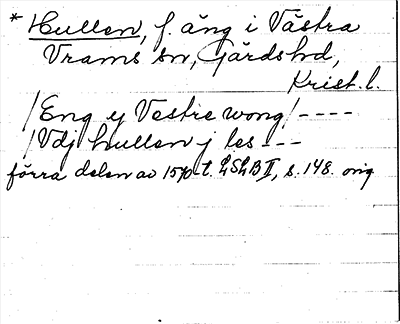 * Hullen, f. äng i Västra
Vrams sn, Gärds hd,
Krist. l.
/Eng y Vestre wong/ ----
/Vdj hullen j les ---
förra delen av 1570-t. LSLB II, s. 148. orig